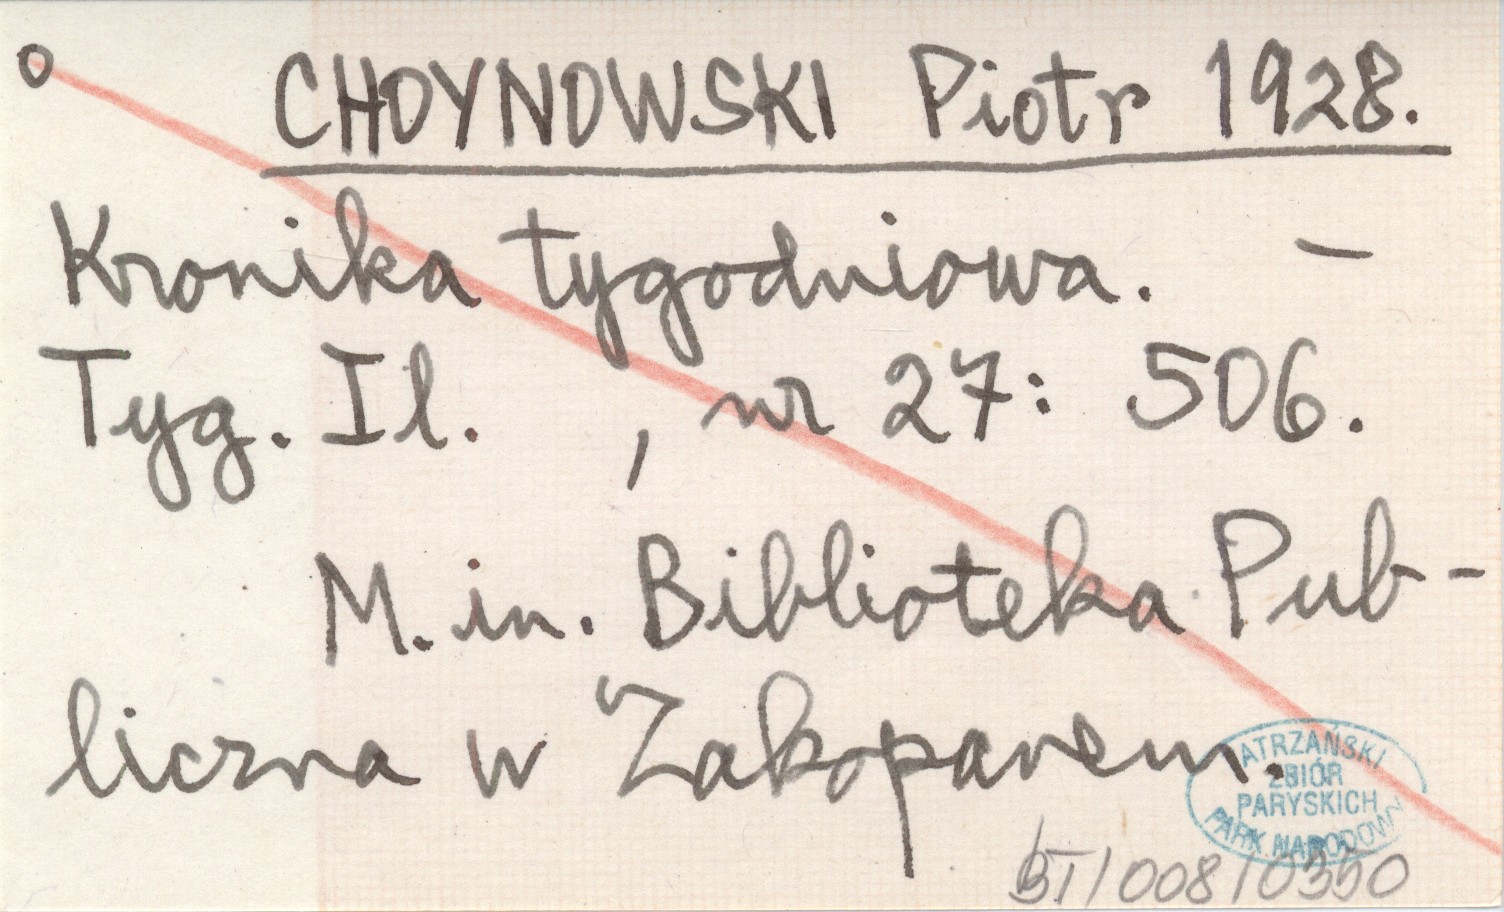 o
CHOYNOWSKI Piotr 1928.
Kronika tygodniowa. –
Tyg. Il. , nr 27: 506.
M. in. Biblioteka Pub-
liczna w Zakopanem.
TATRZAŃSKI
ZBIÓR
PARYSKICH
PARK NARODOWY
BT/008/0350